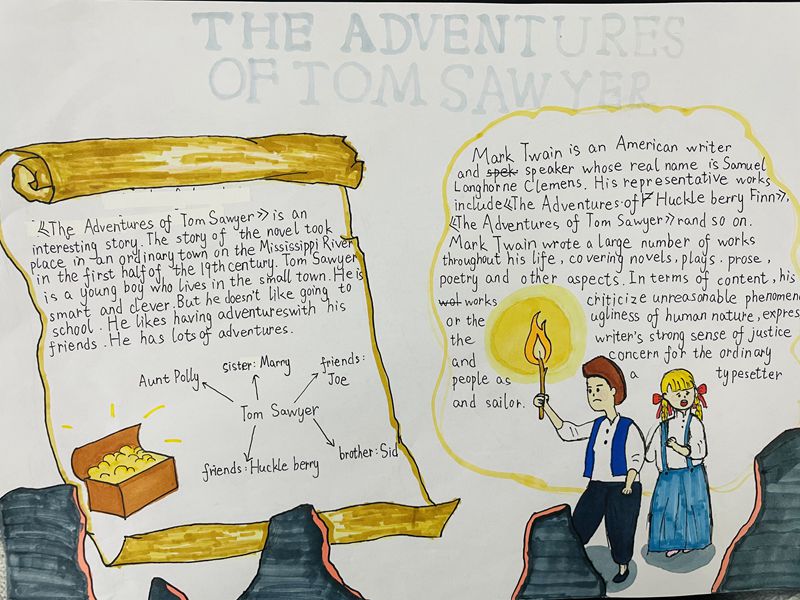 THE ADVENTURES
OF TOM SAWYER
《The Adventures of Tom Sawyer》 is an
interesting story. The story of the novel took
place in an ordinary town on the Mississippi River
in the first half of the 19th century. Tom Sawyer
is a young boy who lives in the small town. He is
smart and clever. But he doesn't like going to
school. He likes having adventures with his
friends. He has lots of adventures.
Aunt Polly
sister: Marry
friends:
Joe
Tom Sawyer
friends: Huckle berry
brother: Sid
Mark Twain is an American writer
and spek speaker whose real name is Samuel
Langhorne Clemens. His representative works
include《The Adventures of F Huckle berry Finn》,
《The Adventures of Tom Sawyer》rand so on.
Mark Twain wrote a large number of works
throughout his life, covering novels, plays. prose,
poetry and other aspects. In terms of content, his
works criticize unreasonable phenomen
or the ugliness of human nature, expres
the writer's strong sense of justice
and concern for the ordinary
people as a typesetter
and sailor.